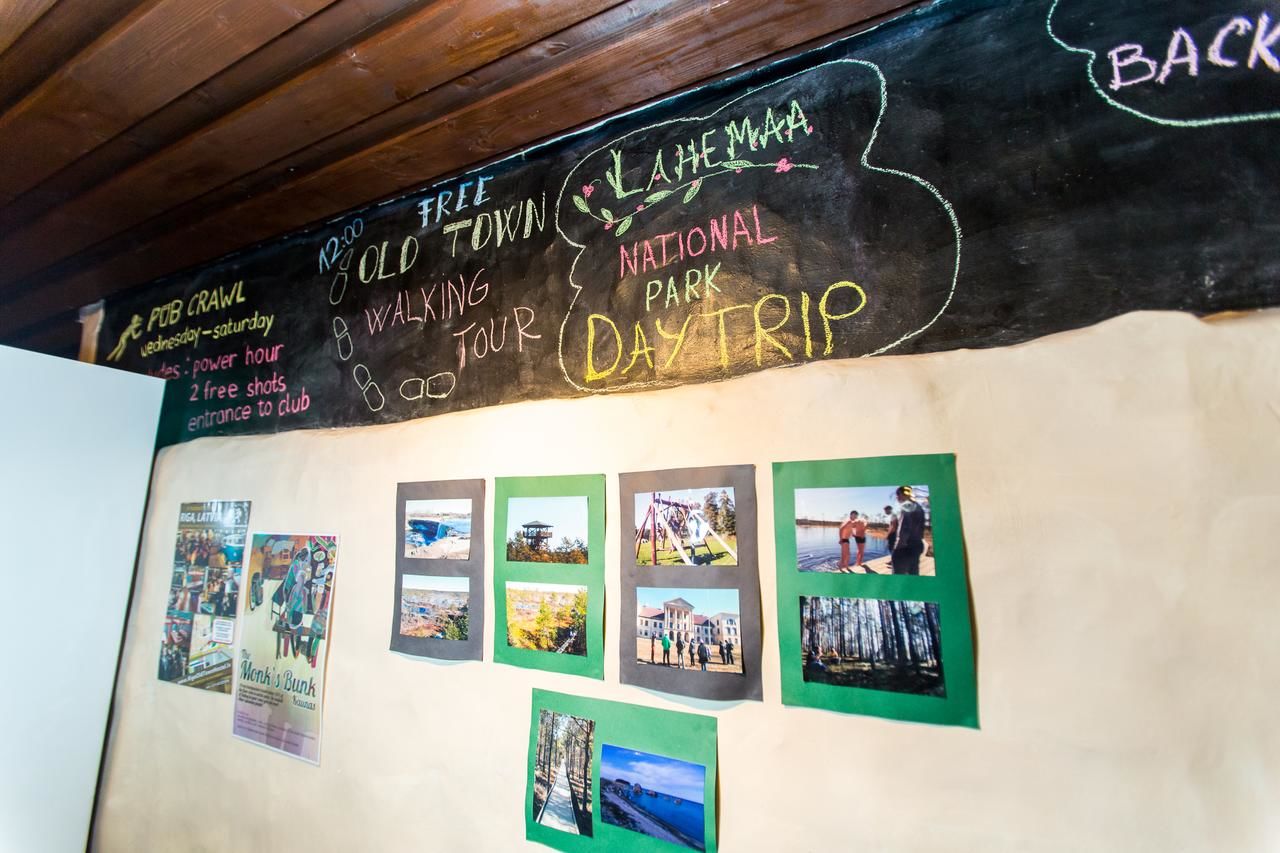 PUB CRAWL
wednesday-saturday
: power hour
2 free shots
entrance to club
12:00
FREE
OLD TOWN
WALKING
TOUR
LAHEMAA
NATIONAL
PARK
DAYTRIP
BACK
RIGA, LATVIA
The
Monk's Bunk
Kaunas